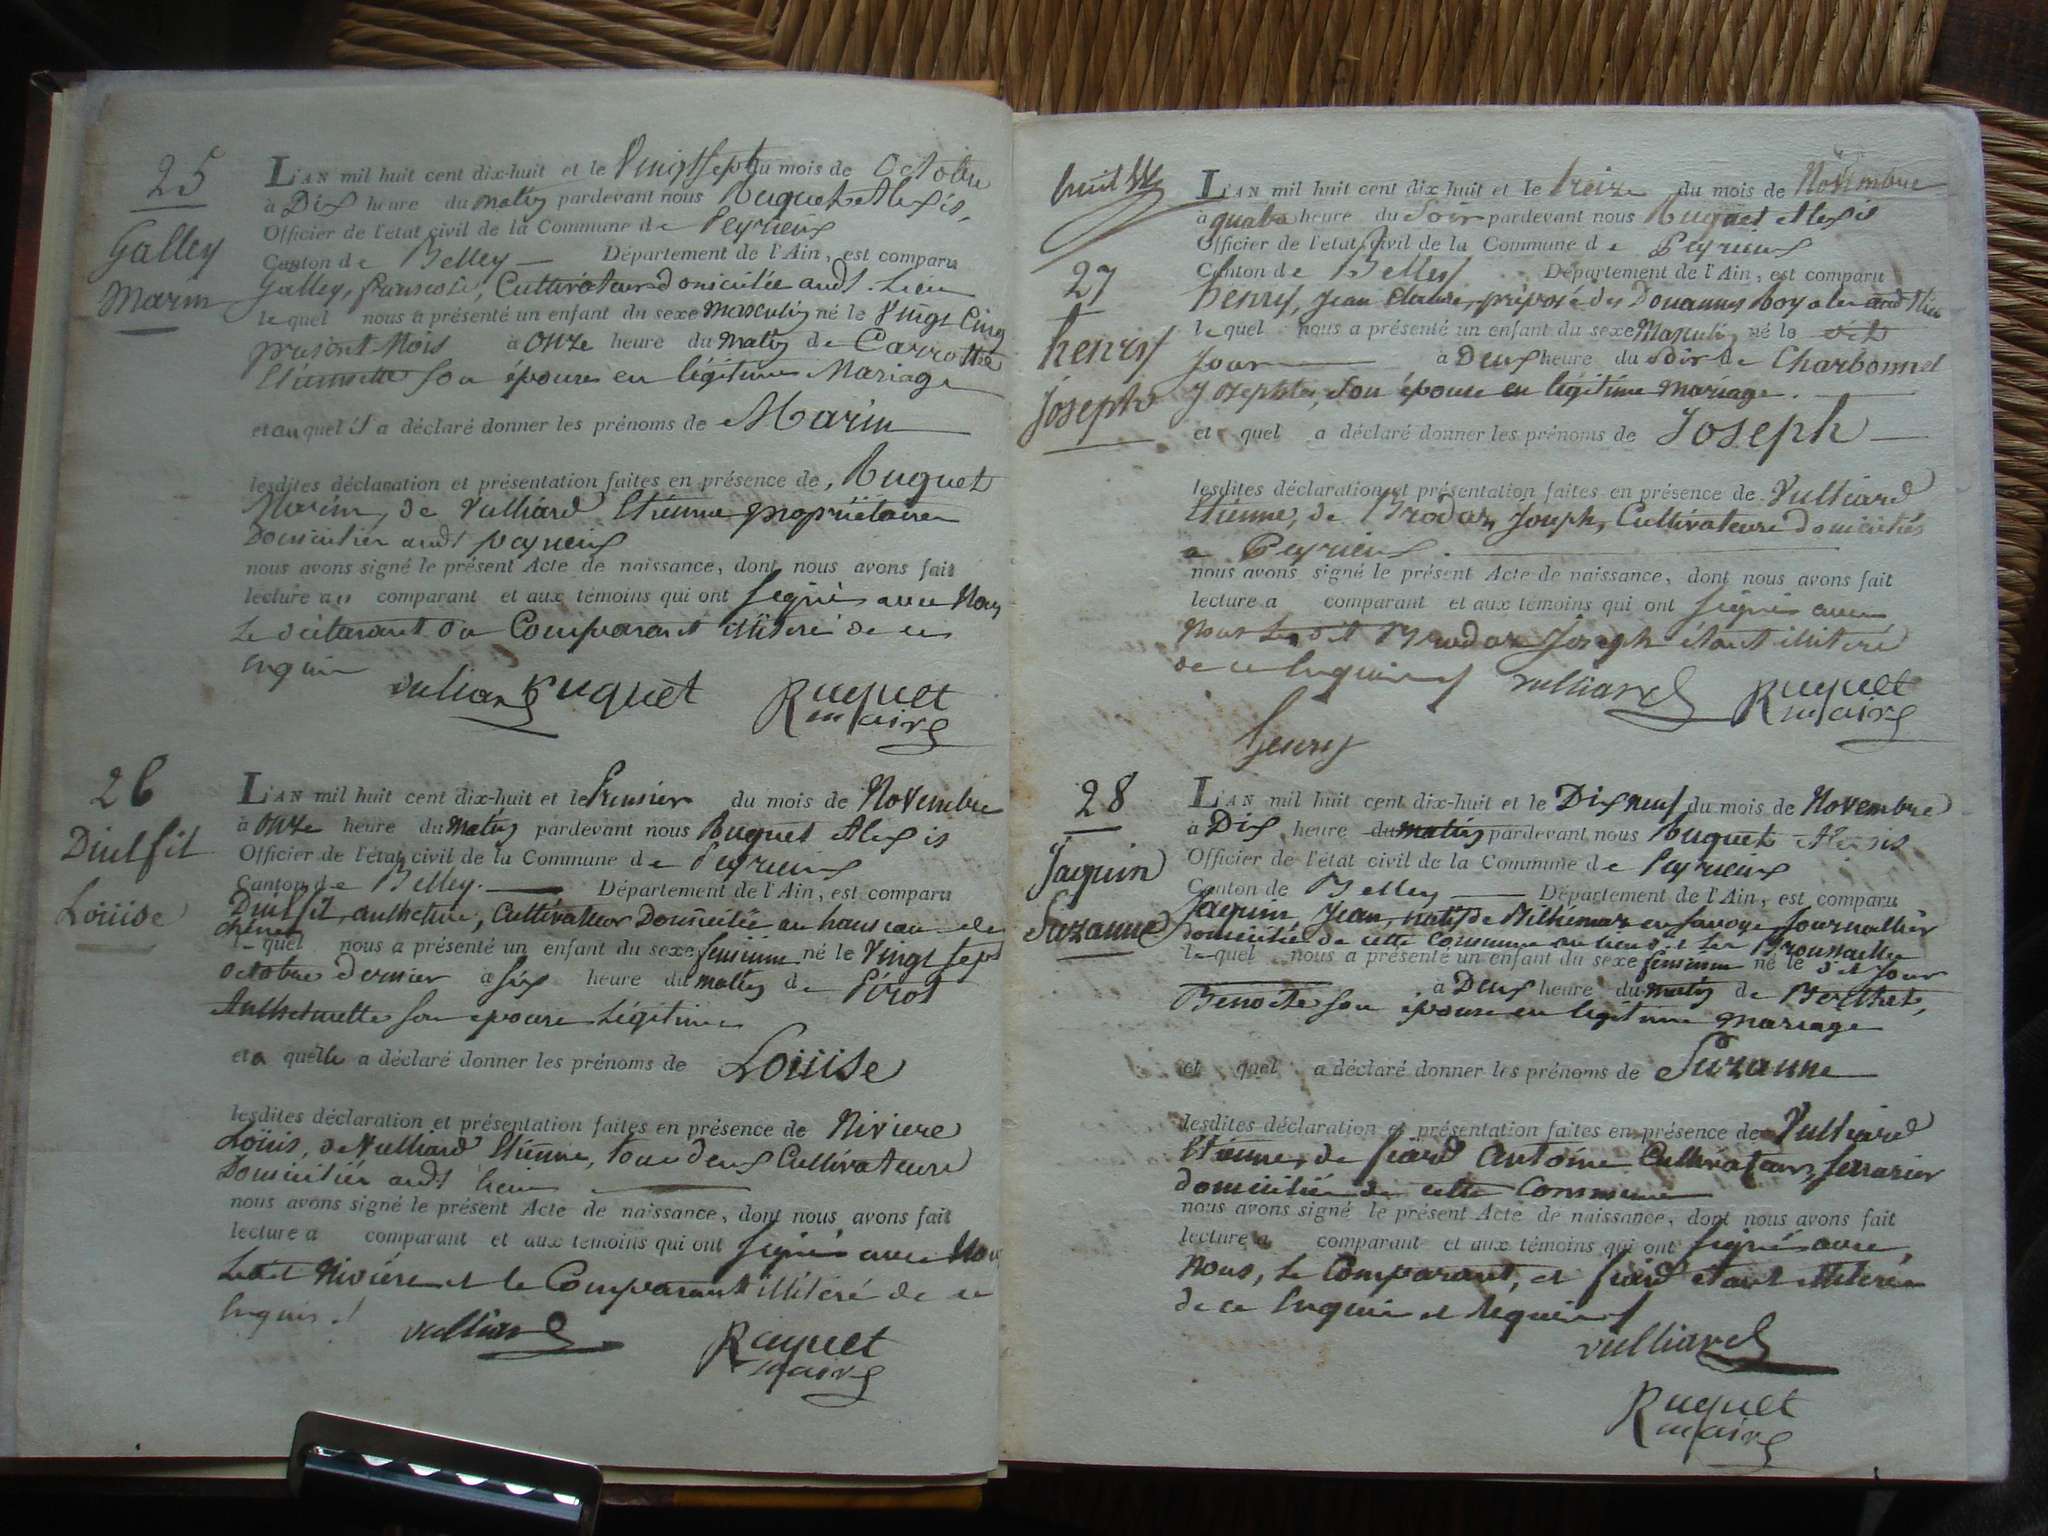 25
Galley
Marin
L'AN mil huit cent dix-huit et le Vingt sept du mois de Octobre
à Dix heure du matin pardevant nous Ruquet Alexis,
Officier de l'état civil de la Commune de Peyrieux
Canton de Belley Département de l'Ain, est comparu
Galley, francois, Cultivateur domiciliée audt. Lieu
lequel nous a présenté un enfant du sexe masculin né le Vingt Cinq
présent Mois à Onze heure du matin de Carrotte
Etiennette son épouse en légitime Mariage
et auquel il a déclaré donner les prénoms de Marin
lesdites déclaration et présentation faites en présence de, Ruquet
Marin, de Vulliard Etienne propriétaires
Domicilier audt peyrieux
nous avons signé le présent Acte de naissance, dont nous avons fait
lecture au comparant et aux témoins qui ont signés avec Nous
Le Comparant illiteré de ce
Enquis
vulliard Ruquet Ruquet
maire
26
Diulfit
Louise
L'AN mil huit cent dix-huit et le Premier du mois de Novembre
à Onze heure du matin pardevant nous Ruquet Alexis
Officier de l'état civil de la Commune de Peyrieux
Canton de Belley. Département de l'Ain, est comparu
Diulfit, anthelme, Cultivateur Domiciliée au hameau de
lequel nous a présenté un enfant du sexe feminin né le Vingt sept
octobre dernier à six heure du matin de Pirot
Anthelmette son epouse Légitime
et a quelle a déclaré donner les prénoms de Louise
lesdites déclaration et présentation faites en présence de Riviere
Loüis, de Vulliard Etienne, tous deux Cultivateurs
Domicilier audt lieu
nous avons signé le présent Acte de naissance, dont nous avons fait
lecture a comparant et aux témoins qui ont signés avec Nous
Riviére et le Comparant illiteré de ce
Enquis.
vulliard Ruquet
maire
huit
27
henry
Joseph
L'AN mil huit cent dix-huit et le treize du mois de Novembre
à quatre heure du Soir pardevant nous Ruquet Alexis
Officier de l'état civil de la Commune de Peyrieux
Canton de Belley Département de l'Ain, est comparu
henry, Jean Claude, préposé des Douannes Royales audt lieu
lequel nous a présenté un enfant du sexe Masculin né le dit
Jour à Deux heure du soir de Charbonnel
Josephte, son épouse en légitime mariage.
et quel a déclaré donner les prénoms de Joseph
lesdites déclaration et présentation faites en présence de Vulliard
Etienne, de Brodaz Joseph, Cultivateurs domiciliés
a Peyrieux.
nous avons signé le présent Acte de naissance, dont nous avons fait
lecture a comparant et aux témoins qui ont signés avec
Nous Le dit Brodaz Joseph étant illiteré
de ce Enquis
vulliard Ruquet
maire
henry
28
Jaquin
Suzanne
L'AN mil huit cent dix-huit et le Dix neuf du mois de Novembre
à Dix heure du matin pardevant nous Ruquet Alexis
Officier de l'état civil de la Commune de Peyrieux
Canton de Belley Département de l'Ain, est comparu
Jaquin, Jean, natif de en Savoye, Journallier
domicilié de cette Commune au lieu dit Les Broussailles
lequel nous a présenté un enfant du sexe feminin né le dit Jour
à Deux heure du matin de Berthet,
Benoite son épouse en légitime mariage
et quel a déclaré donner les prénoms de Suzanne
lesdites déclaration et présentation faites en présence de Vulliard
Etienne, de Siard Antoine Cultivateur,
domicilié de cette Commune
nous avons signé le présent Acte de naissance, dont nous avons fait
lecture a comparant et aux témoins qui ont signés avec
Nous, Le Comparant, et Siard étant illiterés
de ce Enquis et Requis
vulliard
Ruquet
maire